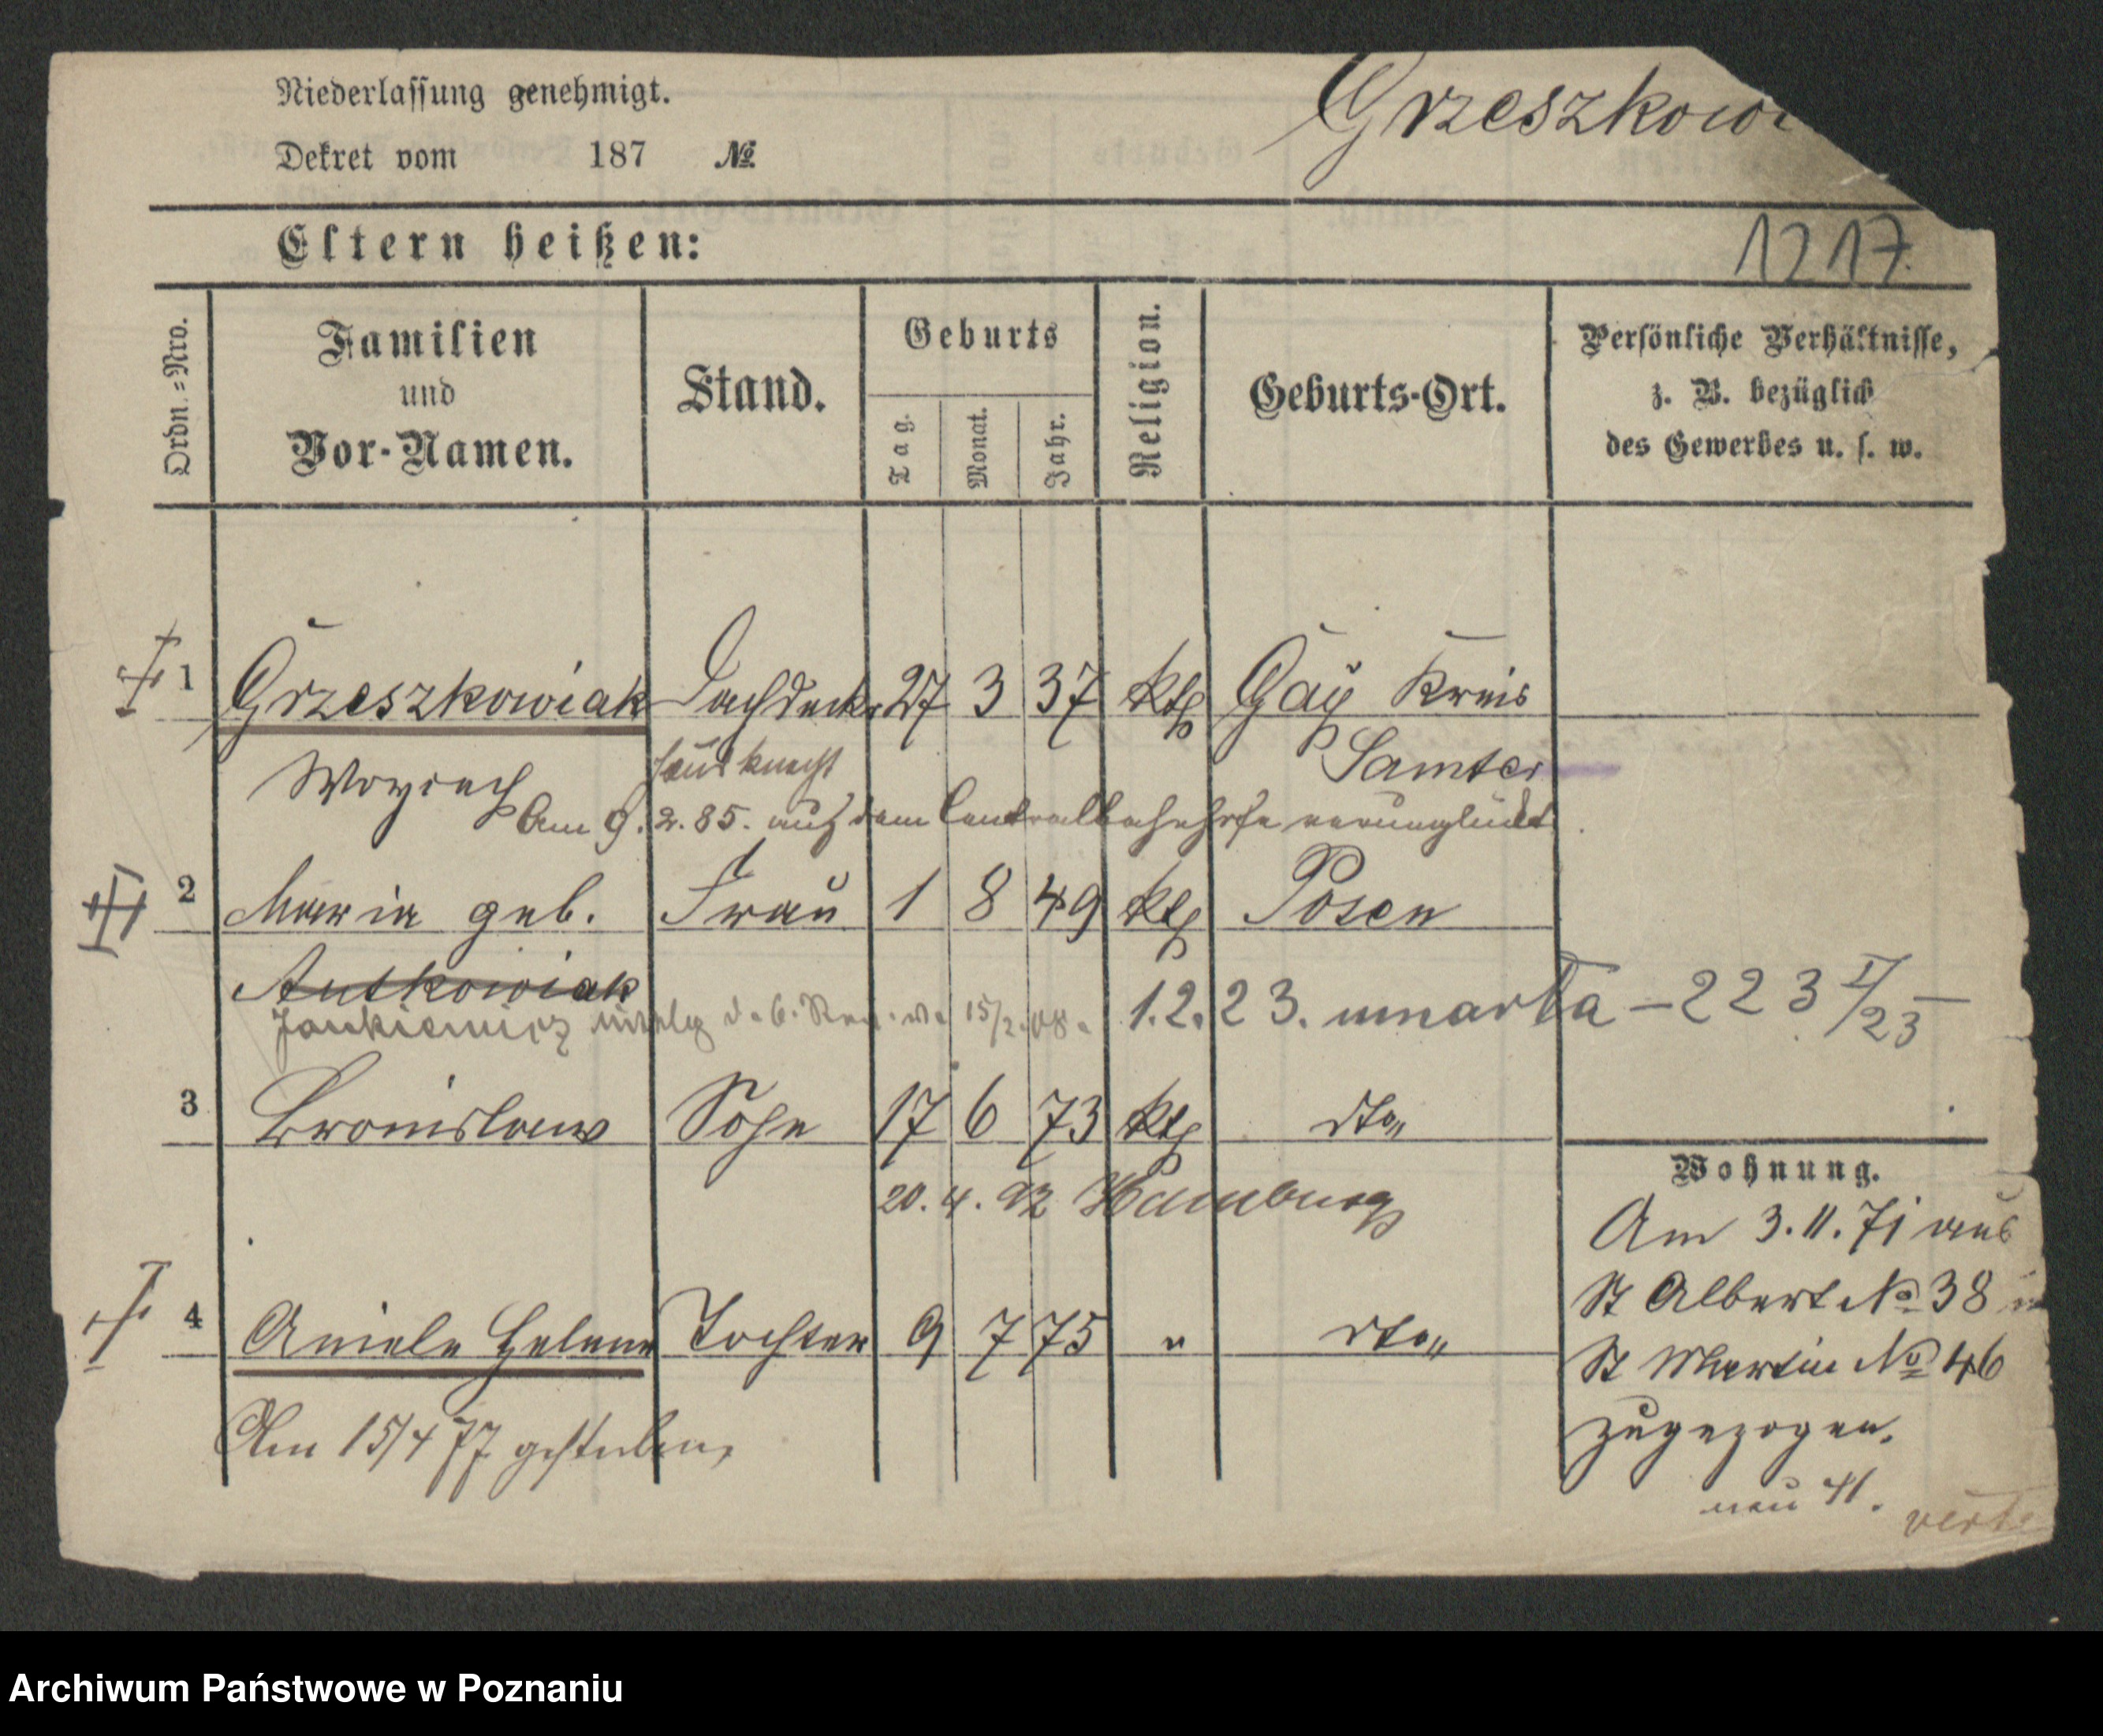 Niederlassung genehmigt.
Grzeszkowi
Dekret vom 187 №
Eltern heißen:
1217.
Ordn.=Nro.
Familien
und
Vor-Namen.
Stand.
Geburts
Tag.
Monat.
Jahr.
Religion.
Geburts-Ort.
Persönliche Verhältnisse,
z. B. bezüglich
des Gewerbes u. s. w.
1 Grzeszkowiak Dachdecker 27 3 37 kth Gay Kreis
Woyciech Hausknecht Samter
Am 9. 2. 85. auf dem Centralbahnhofe verunglückt.
2 Maria geb. Frau 1 8 49 kth Posen
Antkowiak
Jankiewicz 15/2.08. 1.2.23. umarła – 223 I/23 –
3 Bronislaus Sohn 17 6 73 kth dto„
20. 4. 92 Hamburg
4 Aniela Helena Tochter 9 7 75 " dto„
Am 15/4 77 gestorben,
Wohnung.
Am 3.11.71 aus
St Albert No 38
St Martin No 46
zugezogen.
neu 41.
verte